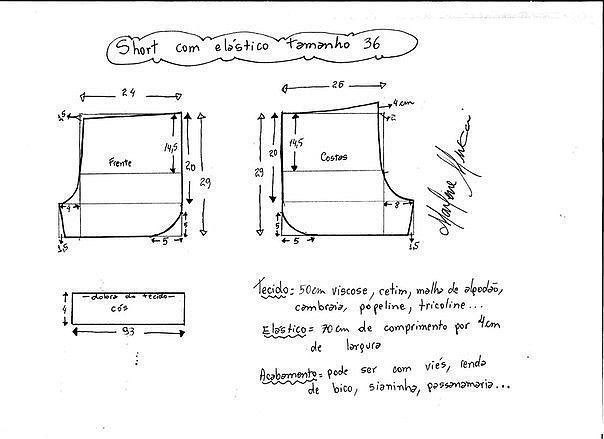 Short com elástico tamanho 36
24
1,5
14,5
20
29
Frente
4
1,5
5
5
26
4 cm
2
14,5
20
29
Costas
8
1,5
5
5
dobra do tecido
cós
4
93
Tecido = 50cm viscose, cetim, malha de algodão,
cambraia, popeline, tricoline...
Elástico = 70cm de comprimento por 4cm
de largura
Acabamento = pode ser com viés, renda
de bico, sianinha, passamanaria...
Marlene Mukai